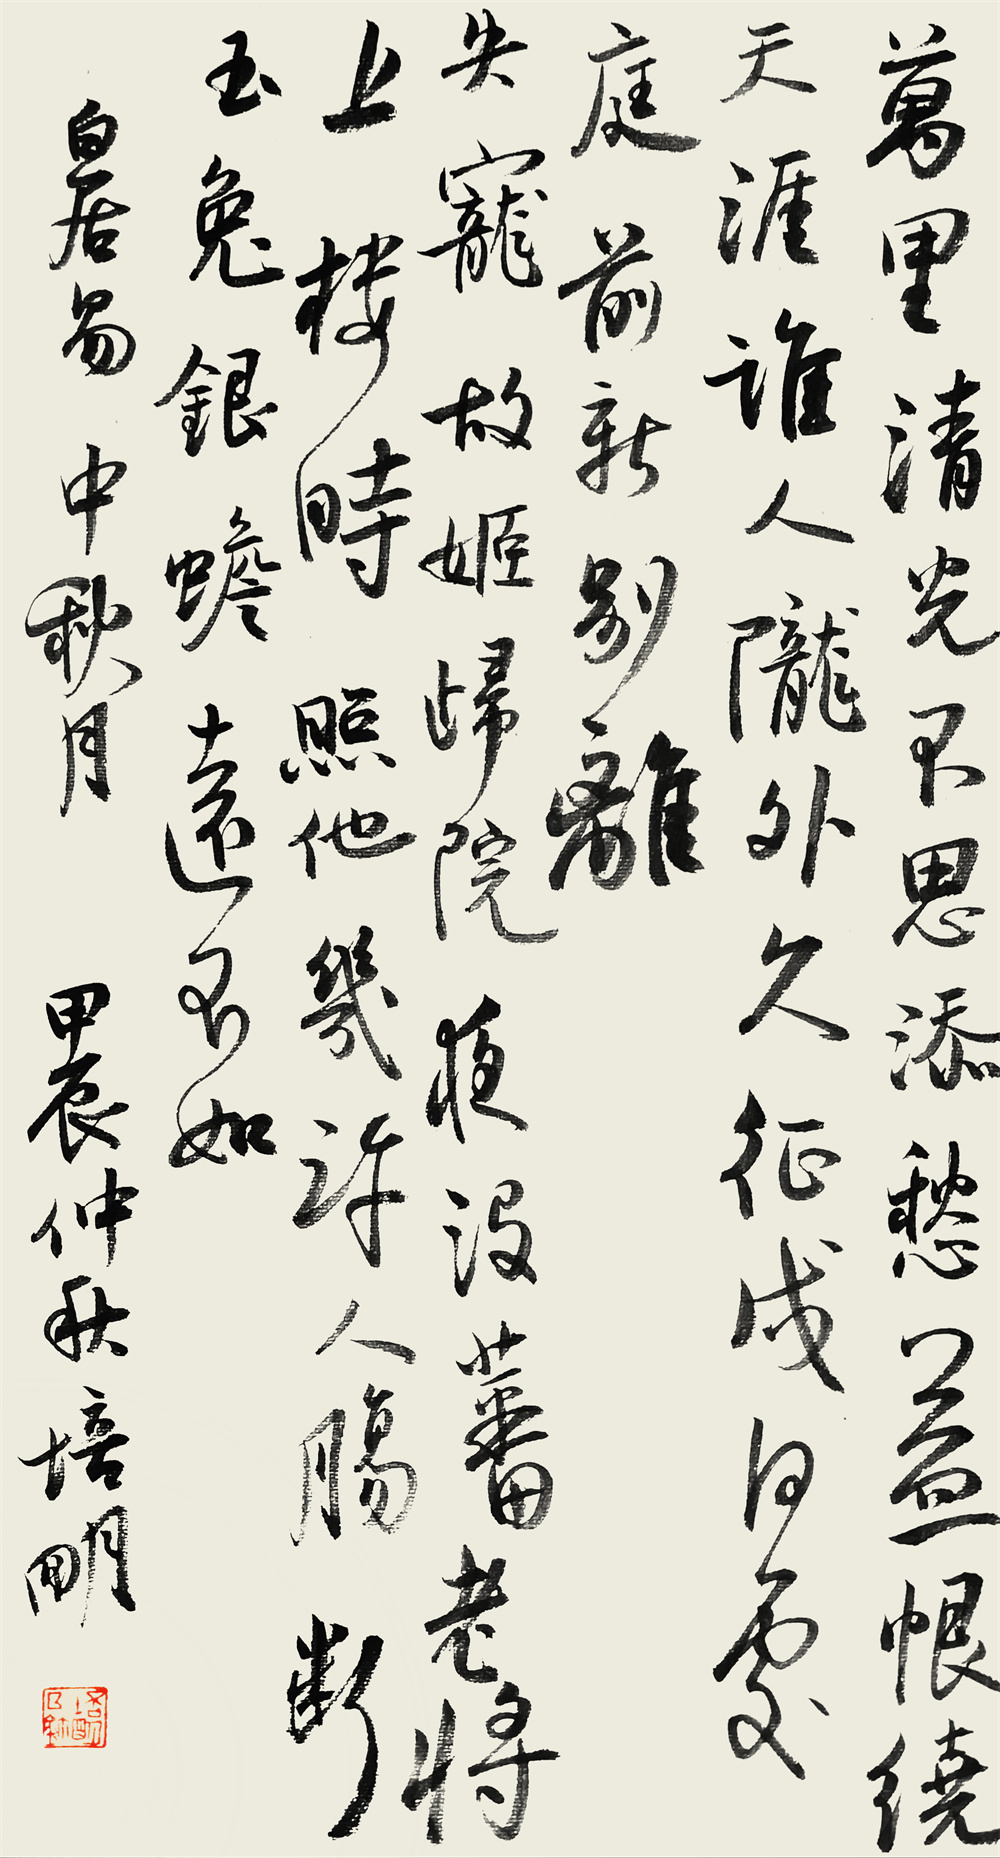 萬里清光不思添愁益恨繞
天涯誰人隴外久征戍何處
庭前新別離
失寵故姬歸院夜沒蕃老將
上樓時照他幾許人腸斷
玉兔銀蟾遠不如
白居易中秋月
甲辰仲秋培明